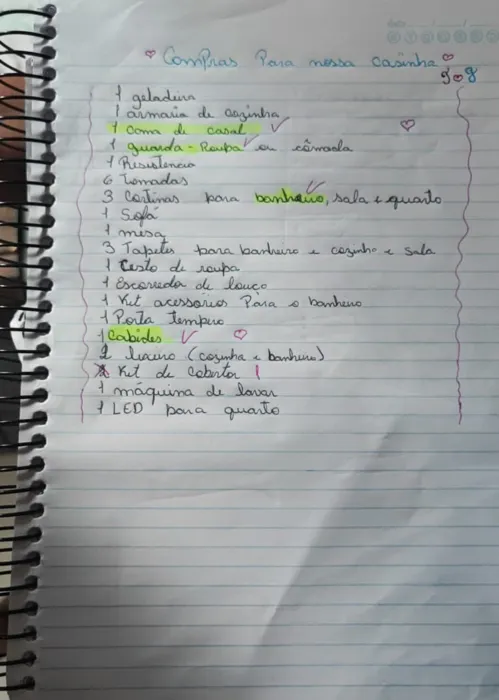 Compras Para nossa casinha
J e J
1 geladeira
1 armaria de cozinha
1 cama de casal
1 guarda-Roupa ou cômoda
1 Resistencia
6 Tomadas
3 Cortinas para banheiro, sala e quarto
1 Sofá
1 mesa
3 Tapetes para banheiro e cozinha e sala
1 Cesto de roupa
1 Escorredor de louça
1 Kit acessórios Para o banheiro
1 Porta tempero
1 Cabides
2 lixeiro (cozinha e banheiro)
Kit de cobertor 1
1 máquina de lavar
1 LED para quarto